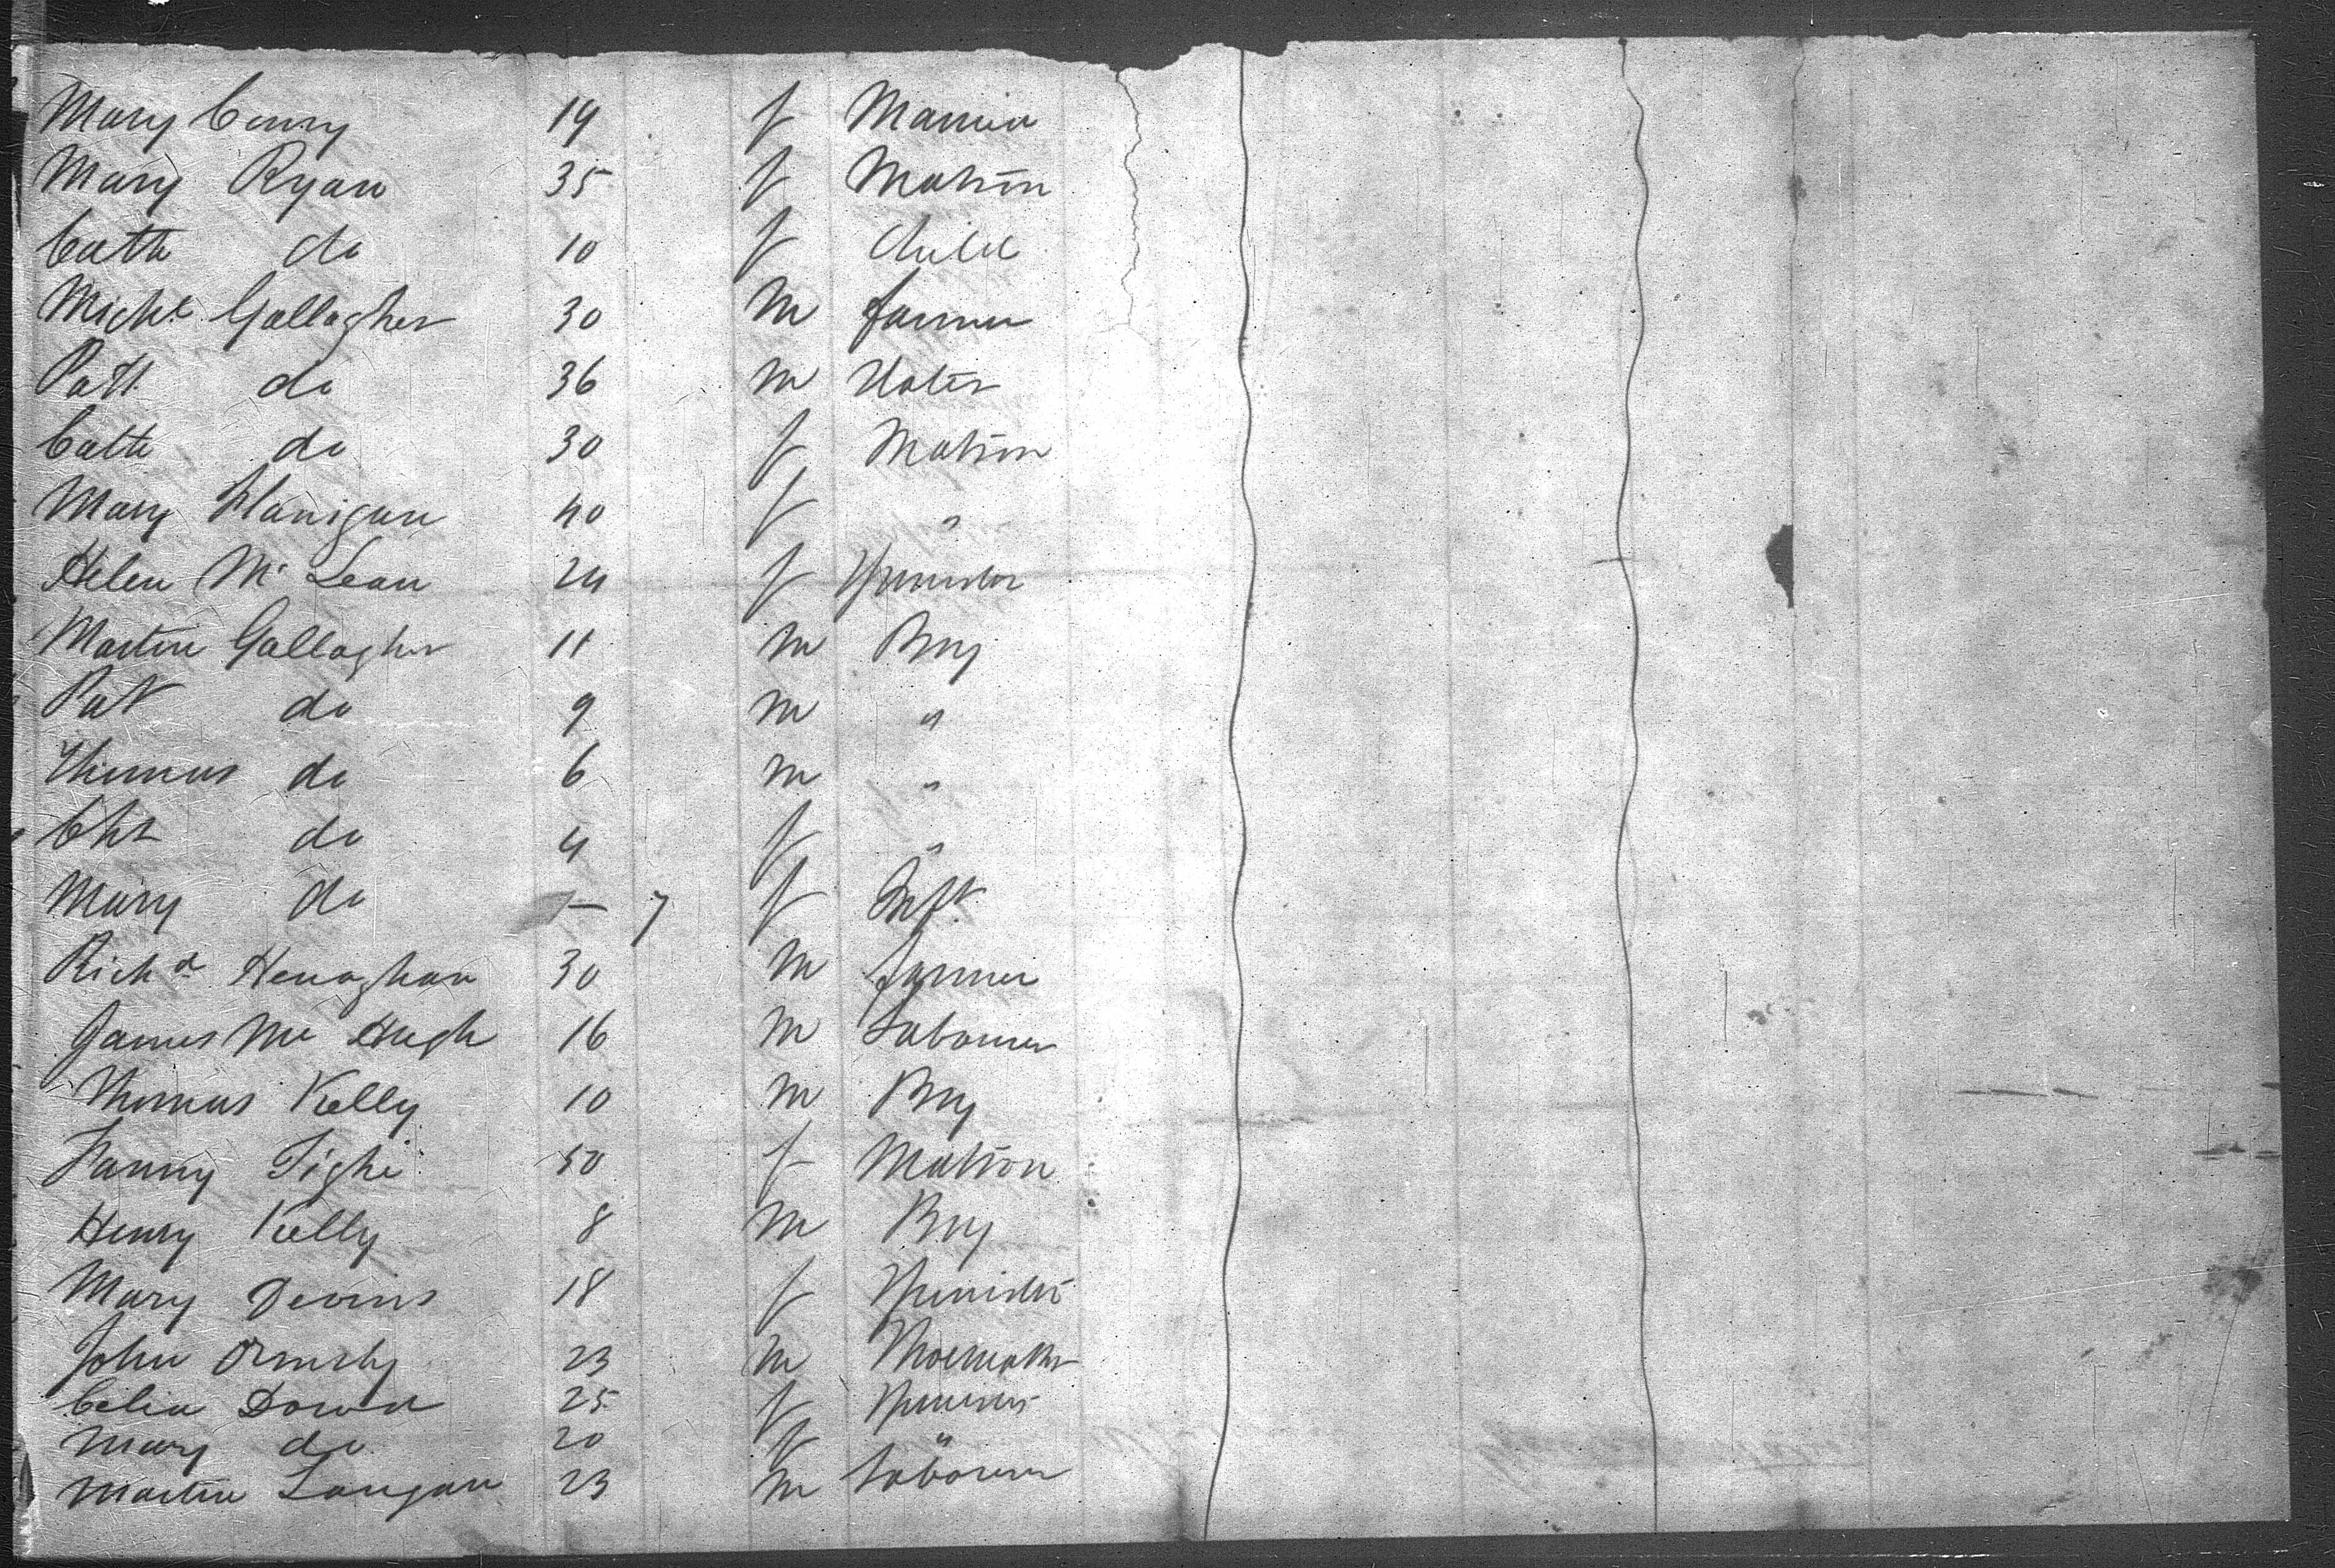 Mary Conry 19 f Married
Mary Ryan 35 f Matron
Cath do 10 f Child
Michl Gallagher 30 m farmer
Patt do 36 m
Cath do 30 f Matron
Mary Flanigan 40 f "
Helen Mc Lean 24 f Spinster
Martin Gallagher 11 m Boy
Pat do 9 m "
Thomas do 6 m "
do 4 f "
Mary do – 7 f Inft
Richd Henaghan 30 m farmer
James Mc Hugh 16 m Labourer
Thomas Kelly 10 m Boy
Fanny Tighe 50 f Matron
Henry Kelly 8 m Boy
Mary Devins 18 f Spinster
John Ormsby 23 m Shoemaker
Celia Dowd 25 f Spinster
Mary do 20 f "
Martin Langan 23 m Labourer